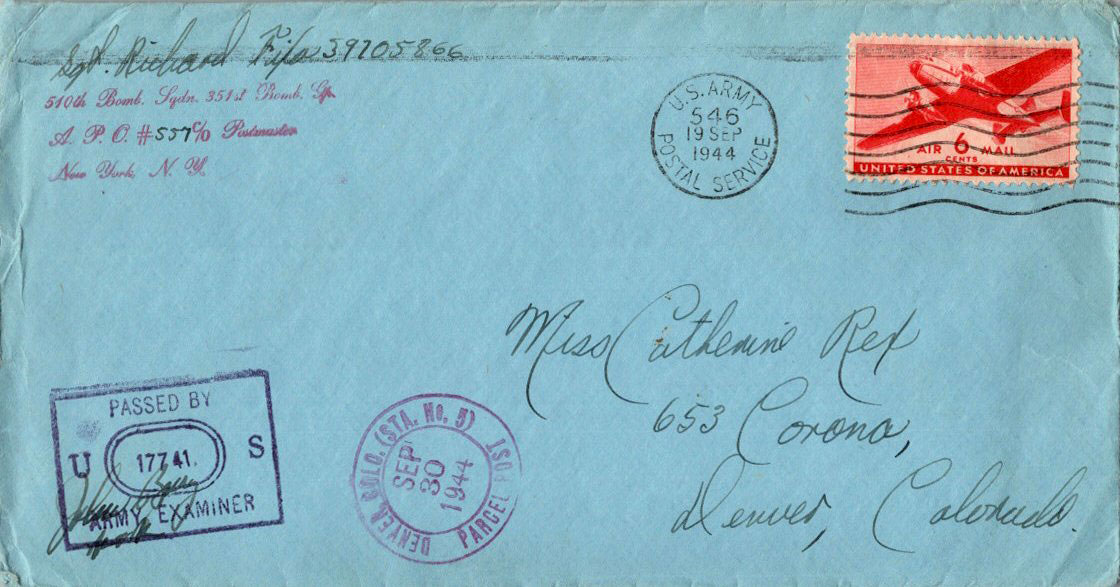 Sgt. Richard Fifer 39705866
510th Bomb. Sqdn. 351st Bomb. Gp.
A. P. O. #557 c/o Postmaster
New York, N. Y.
U.S. ARMY
546
19 SEP
1944
POSTAL SERVICE
AIR 6 MAIL
CENTS
UNITED STATES OF AMERICA
Miss Catherine Rex
653 Corona,
Denver, Colorado.
PASSED BY
U 17741. S
ARMY EXAMINER
DENVER, COLO. (STA. No. 5)
SEP
30
1944
PARCEL POST